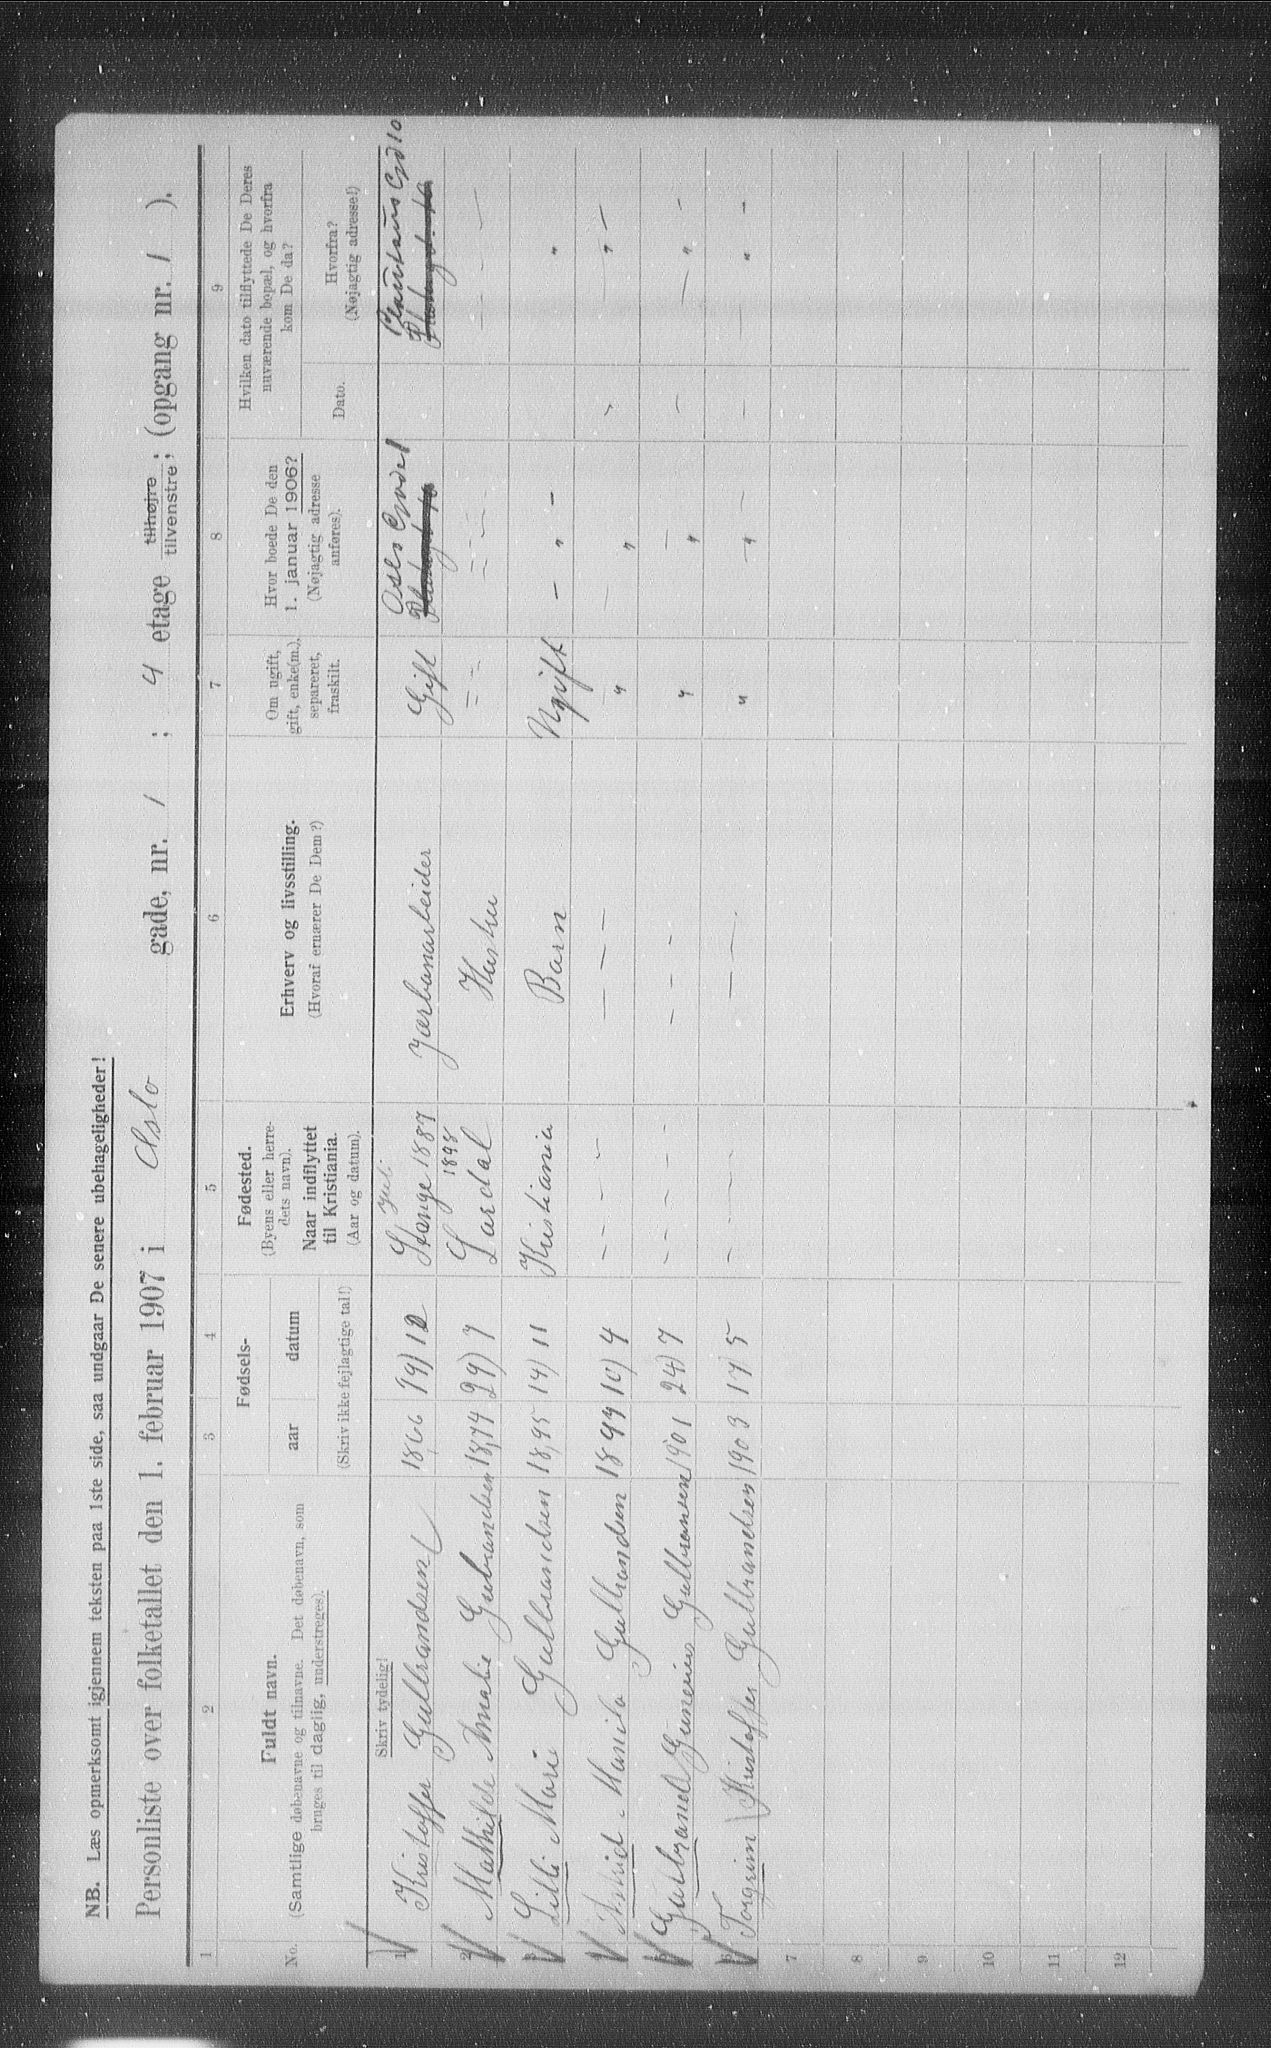 NB. Læs opmerksomt igjennem teksten paa 1ste side, saa undgaar De senere ubehageligheder!
Personliste over folketallet den 1. februar 1907 i Oslo gade, nr. 1 ; 4 etage tilhøjre tilvenstre; (opgang nr. 1 ).
1 2 3 4 5 6 7 8 9
No. Fuldt navn.
(Samtlige døbenavne og tilnavne. Det døbenavn, som
bruges til daglig, understreges).
Fødsels-
aar datum
(Skriv ikke fejlagtige tal!)
Fødested.
(Byens eller herre-
dets navn).
Naar indflyttet
til Kristiania.
(Aar og datum).
Erhverv og livsstilling.
(Hvoraf ernærer De Dem?)
Om ugift,
gift, enke(m.),
separeret,
fraskilt.
Hvor boede De den
1. januar 1906?
(Nøjagtig adresse
anføres).
Hvilken dato tilflyttede De Deres
nuværende bopæl, og hvorfra
kom De da?
Dato.
Hvorfra?
(Nøjagtig adresse!)
Skriv tydelig!
1 Kristoffer Gulbrandsen 1866 19) 12 Stange Juli 1887 Jærbanarbeider Gift Oslo
2 Mathilde Amalie Gulbrandsen 1874 29) 7 Lardal 1895 Hustru — " —
3 Lilli Marie Gulbrandsen 1895 14) 11 Kristiania Barn Ugift — " — "
4 Astrid Gulbrandsen 1899 10) 4 - - - - — — — " — " " —
5 Gulbrand Gulbransen 1901 24) 7 - - - - - - - " — " — — " —
6 Torgrim Kristoffer Gulbrandsen 1903 17) 5 - - - - — — " — " — — " —
7
8
9
10
11
12